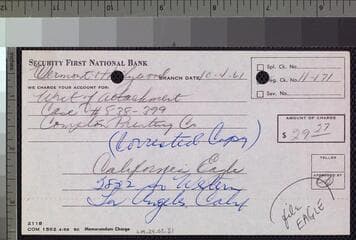 SECURITY FIRST NATIONAL BANK
Vermont Hollywood BRANCH DATE 10-4-61
WE CHARGE YOUR ACCOUNT FOR:
Spl. Ck. No.
Reg. Ck. No. 11-171
Sav. No.
Writ of attachment
Case # 538-399
Compton Printing Co
(Corrected Copy)
AMOUNT OF CHARGE
$ 29 27
TELLER
APPROVED BY
California Eagle
2822 So Western
Los Angeles Calif
file EAGLE
2118
COM 1562 4-59 Memorandum Charge